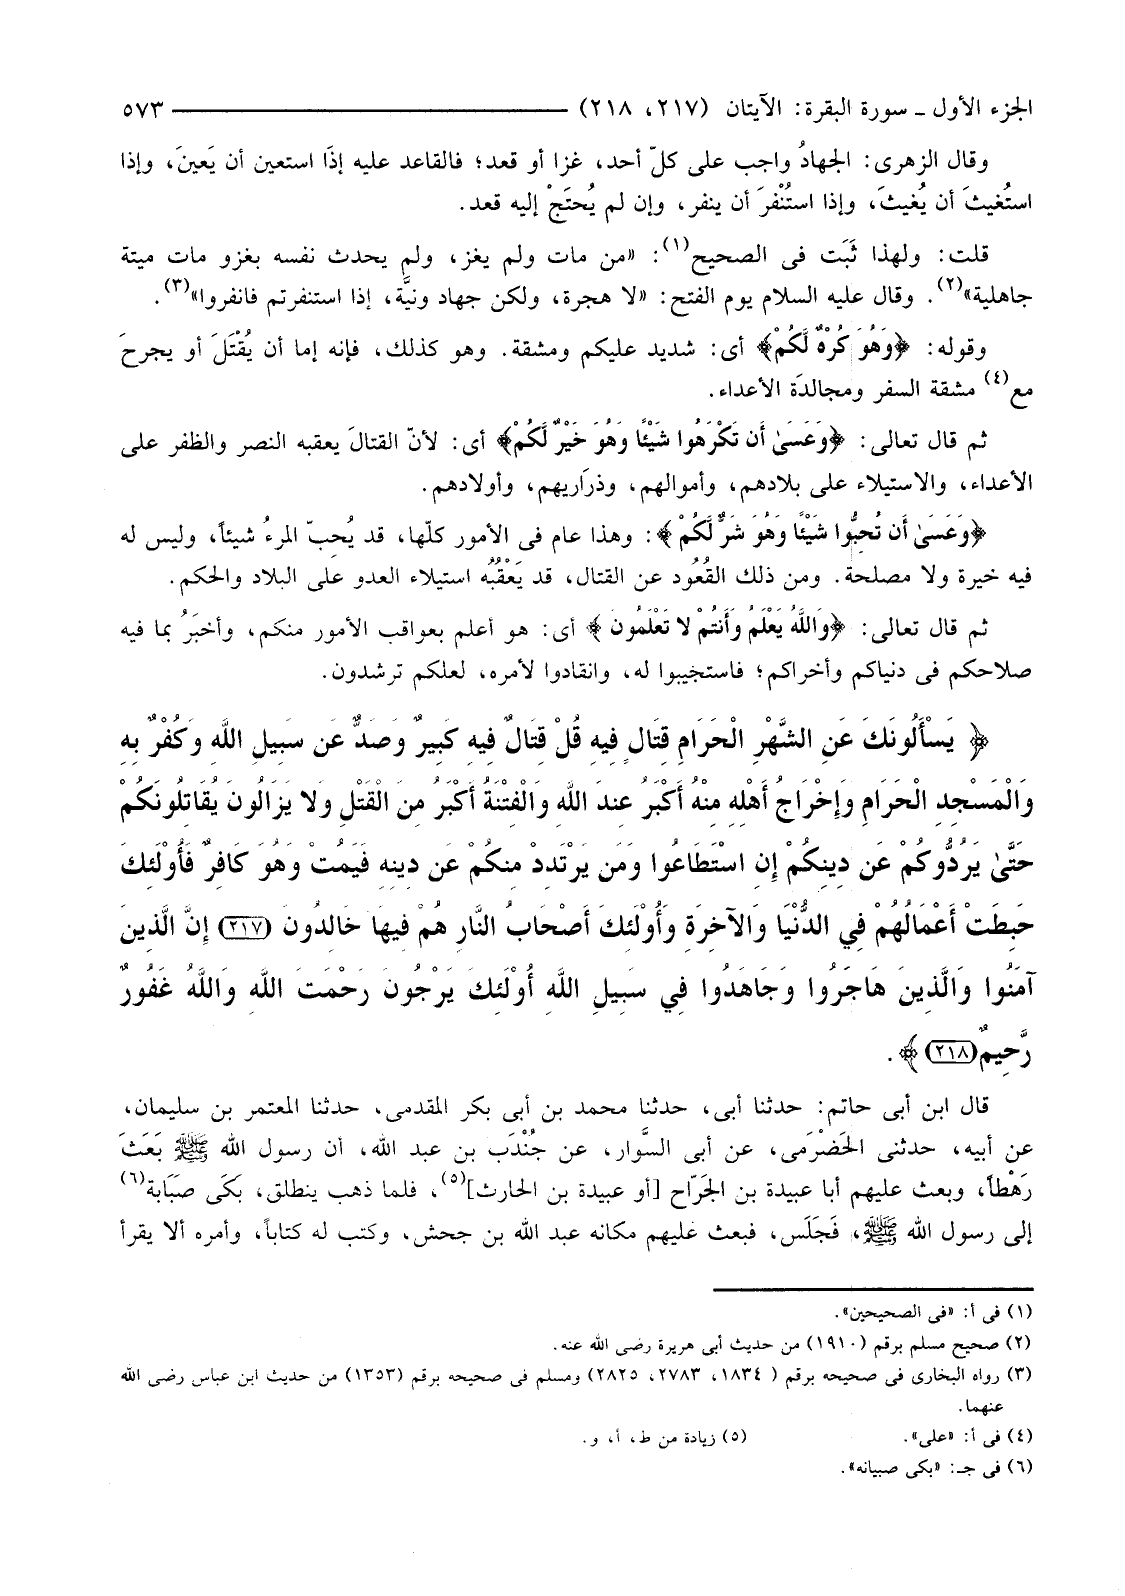 الجزء الأول ـ سورة البقرة: الآيتان (٢١٧، ٢١٨) ٥٧٣
وقال الزهرى: الجهادُ واجب على كلّ أحد، غزا أو قعد؛ فالقاعد عليه إذَا استعين أن يَعينَ، وإذا
استُغيثَ أن يُغيثَ، وإذا استُنْفرَ أن ينفر، وإن لم يُحتَجْ إليه قعد.
قلت: ولهذا ثَبَت فى الصحيح(١): «من مات ولم يغز، ولم يحدث نفسه بغزو مات ميتة
جاهلية»(٢). وقال عليه السلام يوم الفتح: «لا هجرة، ولكن جهاد ونيَّة، إذا استنفرتم فانفروا»(٣).
وقوله: ﴿وَهُوَ كُرْهٌ لَّكُمْ﴾ أى: شديد عليكم ومشقة. وهو كذلك، فإنه إما أن يُقْتَلَ أو يجرحَ
مع(٤) مشقة السفر ومجالدَة الأعداء.
ثم قال تعالى: ﴿وَعَسَىٰ أَن تَكْرَهُوا شَيْئًا وَهُوَ خَيْرٌ لَّكُمْ﴾ أى: لأنّ القتالَ يعقبه النصر والظفر على
الأعداء، والاستيلاء على بلادهم، وأموالهم، وذرَاريهم، وأولادهم.
﴿وَعَسَىٰ أَن تُحبُّوا شَيْئًا وَهُوَ شَرٌّ لَّكُمْ﴾: وهذا عام فى الأمور كلّها، قد يُحِبّ المرءُ شيئاً، وليس له
فيه خيرة ولا مصلحة. ومن ذلك القُعُود عن القتال، قد يَعْقُبُه استيلاء العدو على البلاد والحكم.
ثم قال تعالى: ﴿وَاللَّهُ يَعْلَمُ وَأَنتُمْ لا تَعْلَمُونَ﴾ أى: هو أعلم بعواقب الأمور منكم، وأخبَرُ بما فيه
صلاحكم فى دنياكم وأخراكم؛ فاستجيبوا له، وانقادوا لأمره، لعلكم ترشدون.
﴿ يَسْأَلُونَكَ عَنِ الشَّهْرِ الْحَرَامِ قِتَالٍ فِيهِ قُلْ قِتَالٌ فِيهِ كَبِيرٌ وَصَدٌّ عَن سَبِيلِ اللَّهِ وَكُفْرٌ بِهِ
وَالْمَسْجِدِ الْحَرَامِ وَإِخْرَاجُ أَهْلِهِ مِنْهُ أَكْبَرُ عِندَ اللَّهِ وَالْفِتْنَةُ أَكْبَرُ مِنَ الْقَتْلِ وَلا يَزَالُونَ يُقَاتِلُونَكُمْ
حَتَّىٰ يَرُدُّوكُمْ عَن دِينِكُمْ إِنِ اسْتَطَاعُوا وَمَن يَرْتَدِدْ مِنكُمْ عَن دِينِهِ فَيَمُتْ وَهُوَ كَافِرٌ فَأُوْلَئِكَ
حَبِطَتْ أَعْمَالُهُمْ فِي الدُّنْيَا وَالآخِرَةِ وَأُوْلَئِكَ أَصْحَابُ النَّارِ هُمْ فِيهَا خَالِدُونَ (٢١٧) إِنَّ الَّذِينَ
آمَنُوا وَالَّذِينَ هَاجَرُوا وَجَاهَدُوا فِي سَبِيلِ اللَّهِ أُوْلَئِكَ يَرْجُونَ رَحْمَتَ اللَّهِ وَاللَّهُ غَفُورٌ
رَّحِيمٌ (٢١٨)﴾.
قال ابن أبى حاتم: حدثنا أبى، حدثنا محمد بن أبى بكر المقدمى، حدثنا المعتمر بن سليمان،
عن أبيه، حدثنى الحَضْرَمَى، عن أبى السَّوار، عن جُنْدَب بن عبد الله، أن رسول الله ﷺ بَعَثَ
رَهْطاً، وبعث عليهم أبا عبيدة بن الجَرّاح [أو عبيدة بن الحارث](٥)، فلما ذهب ينطلق، بكَى صبَابة(٦)
إلى رسول الله ﷺ، فَجَلَس، فبعث عليهم مكانه عبد الله بن جحش، وكتب له كتاباً، وأمره ألا يقرأ
(١) فى أ: «فى الصحيحين».
(٢) صحيح مسلم برقم (١٩١٠) من حديث أبى هريرة رضى الله عنه.
(٣) رواه البخارى فى صحيحه برقم ( ١٨٣٤، ٢٧٨٣، ٢٨٢٥) ومسلم فى صحيحه برقم (١٣٥٣) من حديث ابن عباس رضى الله
عنهما.
(٤) فى أ: «على». (٥) زيادة من ط، أ، و.
(٦) فى جـ: «بكى صبيانه».